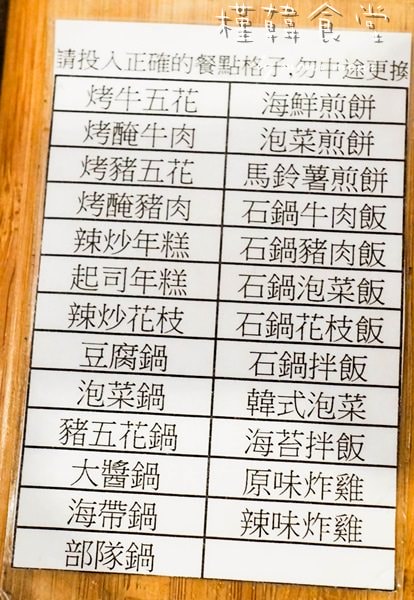 槿韓食堂
請投入正確的餐點格子,勿中途更換
烤牛五花 海鮮煎餅
烤醃牛肉 泡菜煎餅
烤豬五花 馬鈴薯煎餅
烤醃豬肉 石鍋牛肉飯
辣炒年糕 石鍋豬肉飯
起司年糕 石鍋泡菜飯
辣炒花枝 石鍋花枝飯
豆腐鍋 石鍋拌飯
泡菜鍋 韓式泡菜
豬五花鍋 海苔拌飯
大醬鍋 原味炸雞
海帶鍋 辣味炸雞
部隊鍋